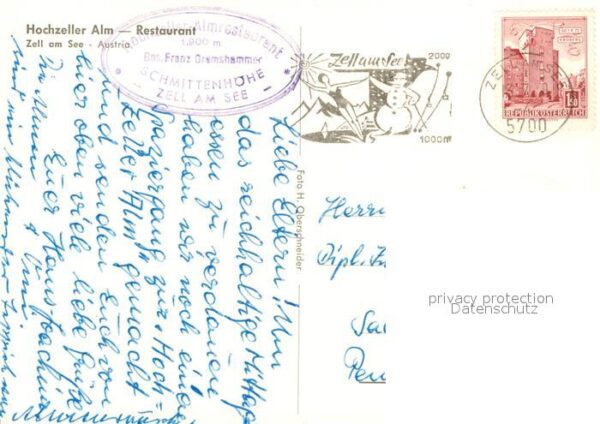 Hochzeller Alm — Restaurant
Zell am See - Austria
Hochzeller-Almrestaurant
1.900 m
Bes. Franz Gramshammer
SCHMITTENHÖHE
ZELL AM SEE
Zell am See
2000
1000m
5700
REPUBLIK ÖSTERREICH
Foto H. Oberschneider
Liebe Eltern! Um
das reichhaltige Mittag-
essen zu verdauen
haben wir noch einen
Spaziergang zur Hoch-
zeller Alm gemacht
und senden Euch von
hier oben viele liebe Grüße
Euer Hans Joachim
Herrn
Dipl. In
Sa
privacy protection
Datenschutz